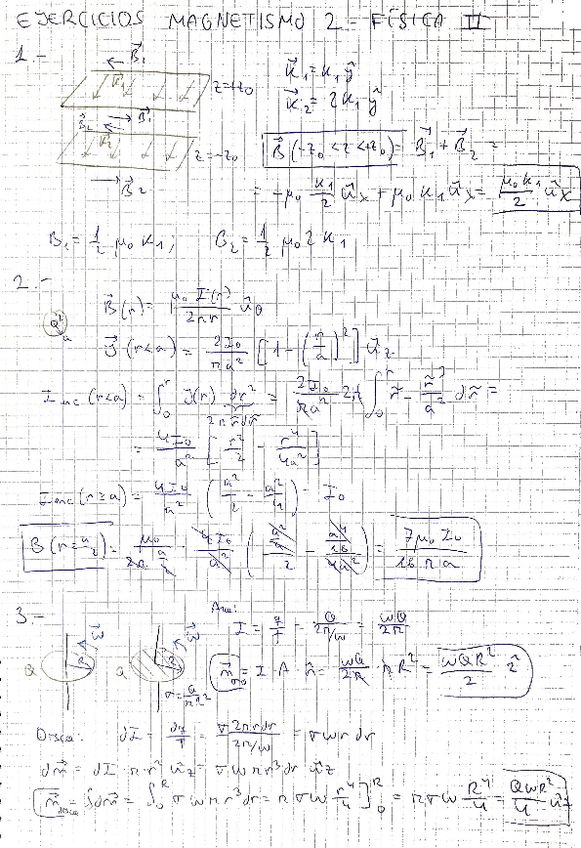 EJERCICIOS MAGNETISMO 2 - FÍSICA II
1.-
B⃗₁
K⃗₁
z=+z₀
B⃗₂ B⃗₁
K⃗₂
z=-z₀
B⃗₂
K⃗₁ = K₁ ŷ
K⃗₂ = 2K₁ ŷ
B⃗ (-z₀ < z < +z₀) = B⃗₁ + B⃗₂ =
= -μ₀ K₁/2 u⃗x + μ₀ K₁ u⃗x = μ₀ K₁/2 u⃗x
B₁ = 1/2 μ₀ K₁ ; B₂ = 1/2 μ₀ 2 K₁
2.-
B⃗(r) = μ₀ I(r)/2πr u⃗θ
a
J⃗ (r<a) = 2I₀/πa² [1 - (r/a)²] u⃗z
Ienc (r<a) = ∫₀ʳ J(r) dr² = 2I₀/πa² 2π ∫₀ʳ r̃ - r̃³/a² dr̃ =
2π r̃ dr̃
= 4I₀/a² [r²/2 - r⁴/4a²]
Ienc (r≥a) = 4I₀/a² (a²/2 - a²/4) = I₀
B (r = a/2) = μ₀/2π a/2 4I₀/a² (a²/4/2 - a⁴/16/4a²) = 7μ₀ I₀/16 π a
3.-
ω⃗ ω⃗
Q R Q R
σ = Q/πR²
I = q/t = Q/2π/ω = ωQ/2π
m⃗ = I · A · n̂ = ωQ/2π π R² = ωQR²/2 ẑ
Disco: dI = dq/T = σ2πrdr/2π/ω = σωr dr
dm⃗ = dI π r² u⃗z = σ ω π r³ dr u⃗z
m⃗disco = ∫dm⃗ = ∫₀ᴿ σ ω π r³ dr = π σ ω r⁴/4 ]₀ᴿ = π σ ω R⁴/4 = QωR²/4 u⃗z